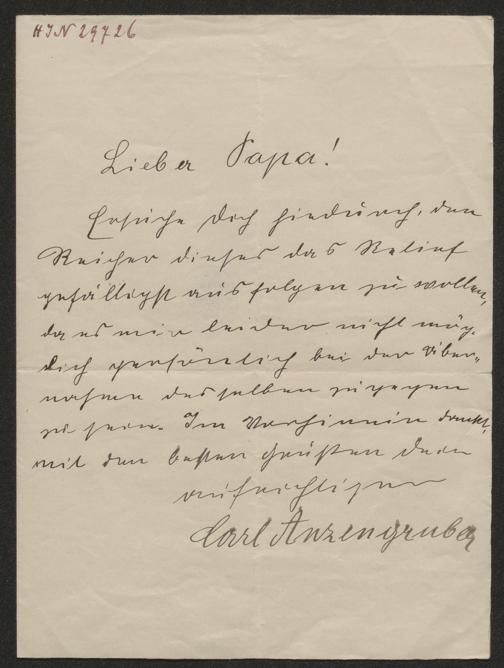 HIN 29726
Lieber Papa!
Ersuche Dich hiedurch, den
Reicher dieses das Relief
gefälligst ausfolgen zu wollen,
da es mir leider nicht mög-
lich persönlich bei der Über-
nahme desselben zugegen
zu sein. Im Vorhinein dankt,
mit den besten Grüßen Dein
aufrichtiger
Carl Anzengruber